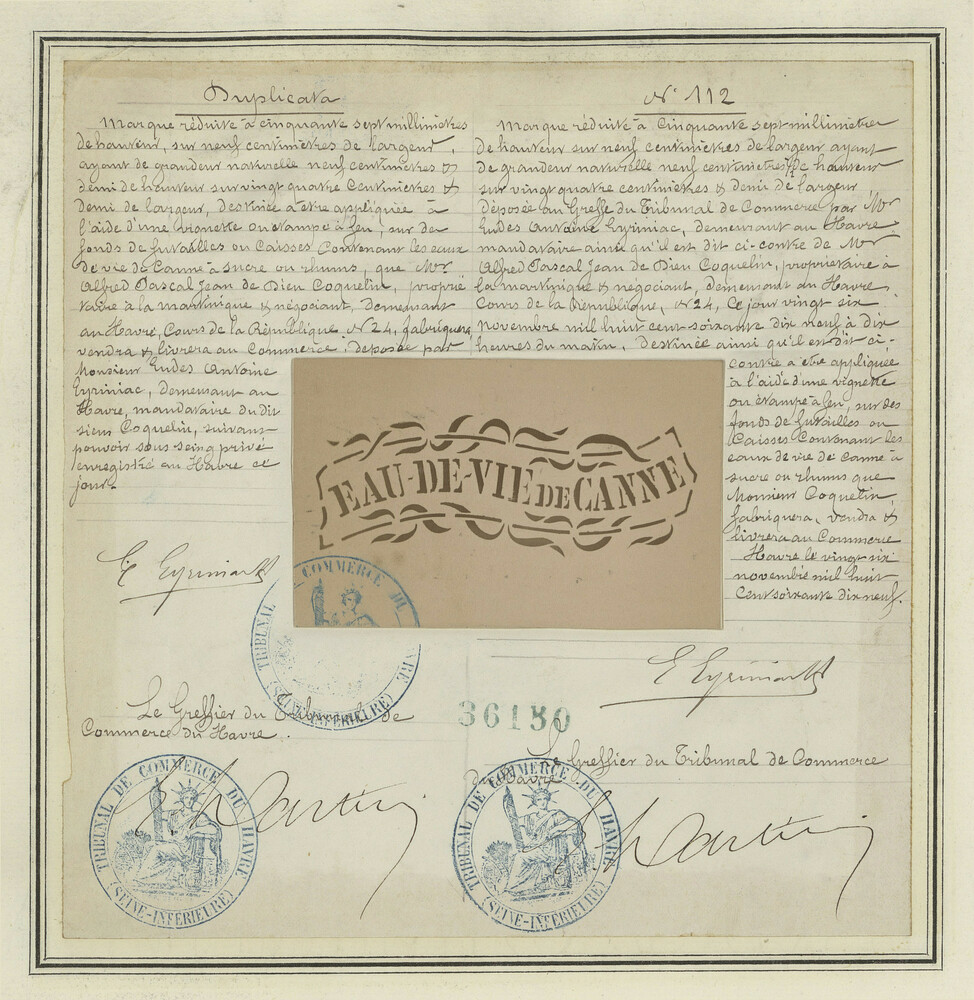 Duplicata
Marque réduite à cinquante sept millimètres
de hauteur, sur neuf centimètres de largeur,
ayant de grandeur naturelle neuf centimètres &
demi de hauteur sur vingt quatre centimètres &
demi de largeur, destinée à être appliquée à
l'aide d'une vignette ou étampe à feu, sur des
fonds de futailles ou caisses contenant les eaux
de vie de canne à sucre ou rhums, que Mr
Alfred Pascal Jean de Dieu Coquelin, proprié
taire à la martinique & négociant, demeurant
au Havre, Cours de la République N° 24, fabriquera,
vendra & livrera au Commerce, déposée par
Monsieur Eudes Antoine
Eyriniac, demeurant au
Havre, mandataire du dit
sieur Coquelin, suivant
pouvoir sous seing privé
enregistré au Havre ce
jour.
E Eyriniac
Le Greffier du Tribunal de
Commerce du Havre.
Martin
TRIBUNAL DE COMMERCE DU HAVRE
(SEINE-INFERIEURE)
N° 112
Marque réduite à Cinquante sept millimètres
de hauteur sur neuf centimètres de largeur ayant
de grandeur naturelle neuf centimètres ½ de hauteur
sur vingt quatre centimètres & demi de largeur
déposée au Greffe du Tribunal de Commerce par Mr
Eudes Antoine Eyriniac, demeurant au Havre
mandataire ainsi qu'il est dit ci-contre de Mr
Alfred Pascal Jean de Dieu Coquelin, propriétaire à
la martinique & négociant, demeurant au Havre
Cours de la République, N° 24, Ce jour vingt six
novembre mil huit cent soixante dix neuf à dix
heures du matin. Destinée ainsi qu'il en dit ci-
contre à être appliquée
à l'aide d'une vignette
ou étampe à feu, sur des
fonds de futailles ou
Caisses Contenant les
eaux de vie de canne à
sucre ou rhums que
Monsieur Coquelin,
fabriquera, vendra &
livrera au Commerce
Havre le vingt six
novembre mil huit
cent soixante dix neuf.
E Eyriniac
36130
Le Greffier du Tribunal de Commerce
du Havre
Martin
TRIBUNAL DE COMMERCE DU HAVRE
(SEINE-INFERIEURE)
EAU-DE-VIE DE CANNE
TRIBUNAL DE COMMERCE DU HAVRE
(SEINE-INFERIEURE)